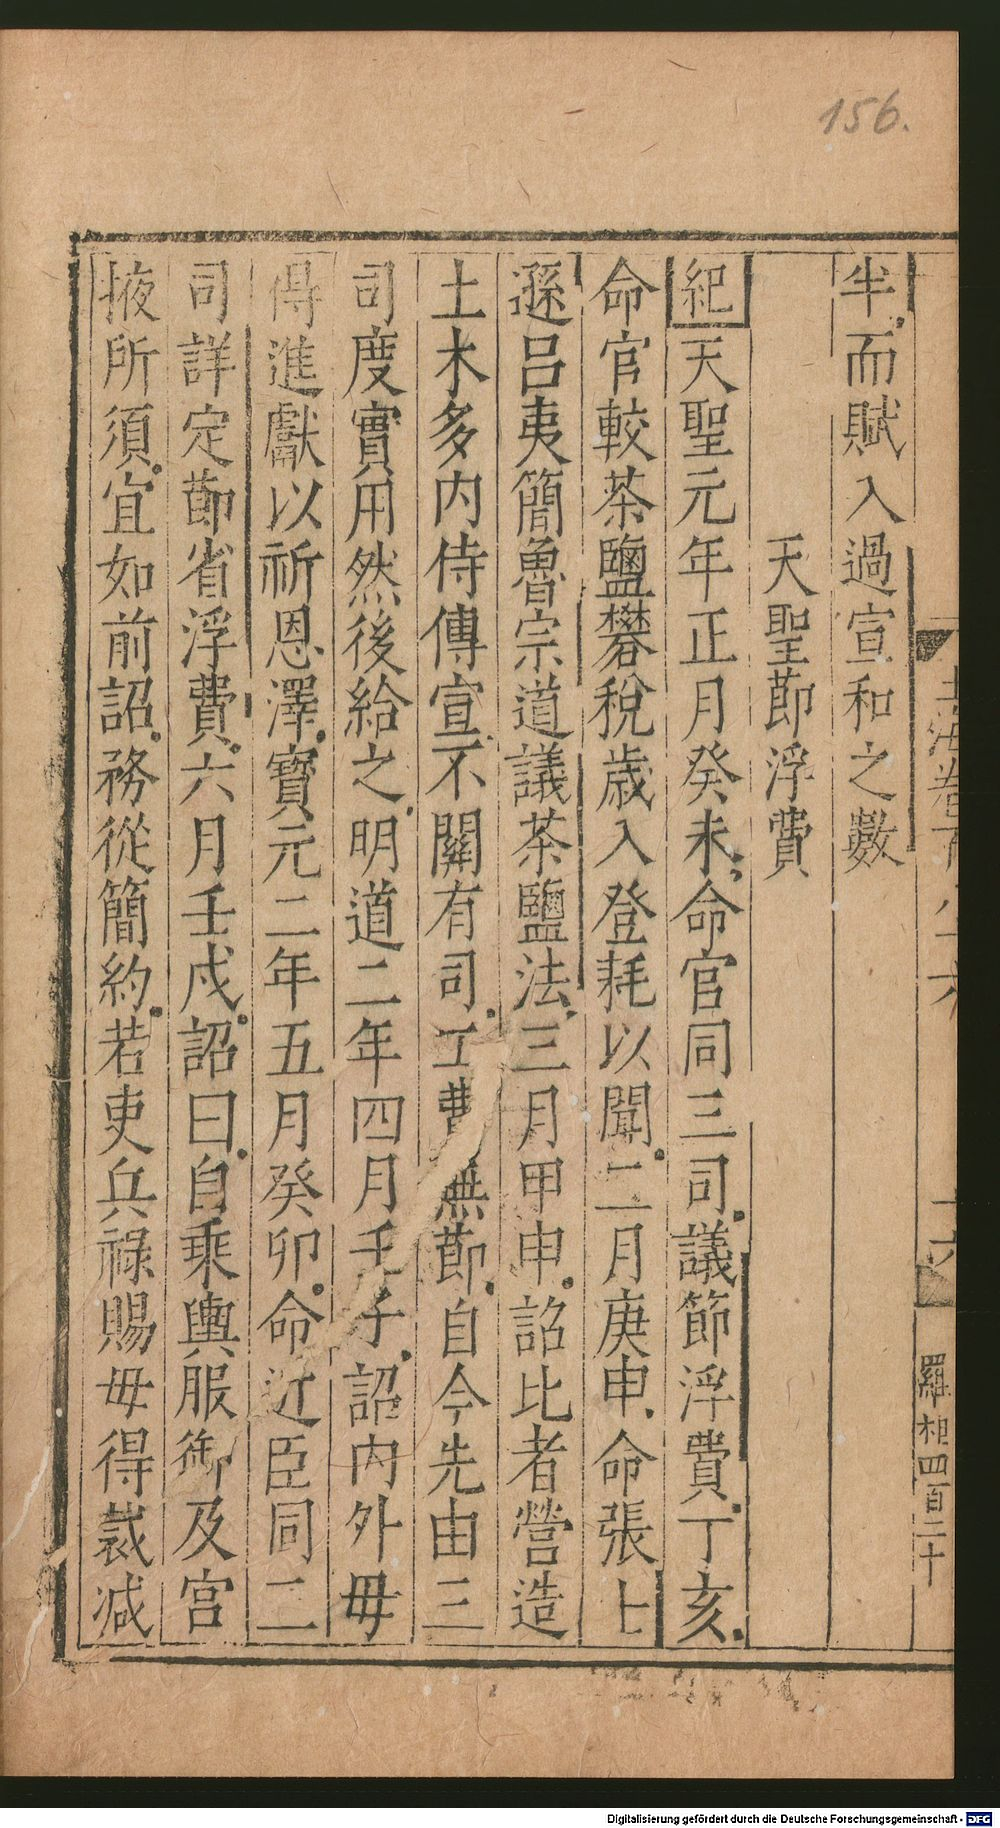 156.
半而賦入過宣和之數
天聖節浮費
紀天聖元年正月癸未命官同三司議節浮費丁亥
命官較茶鹽礬稅歲入登耗以聞二月庚申命張士
遜呂夷簡魯宗道議茶鹽法三月甲申詔比者營造
土木多內侍傳宣不關有司工費無節自今先由三
司度實用然後給之明道二年四月壬子詔內外毋
得進獻以祈恩澤寶元二年五月癸卯命近臣同二
司詳定節省浮費六月壬戌詔曰自乘輿服御及宮
掖所須宜如前詔務從簡約若吏兵祿賜毋得裁减
玉海卷百八十六
十六
羅相四百二十
Digitalisierung gefördert durch die Deutsche Forschungsgemeinschaft - DFG